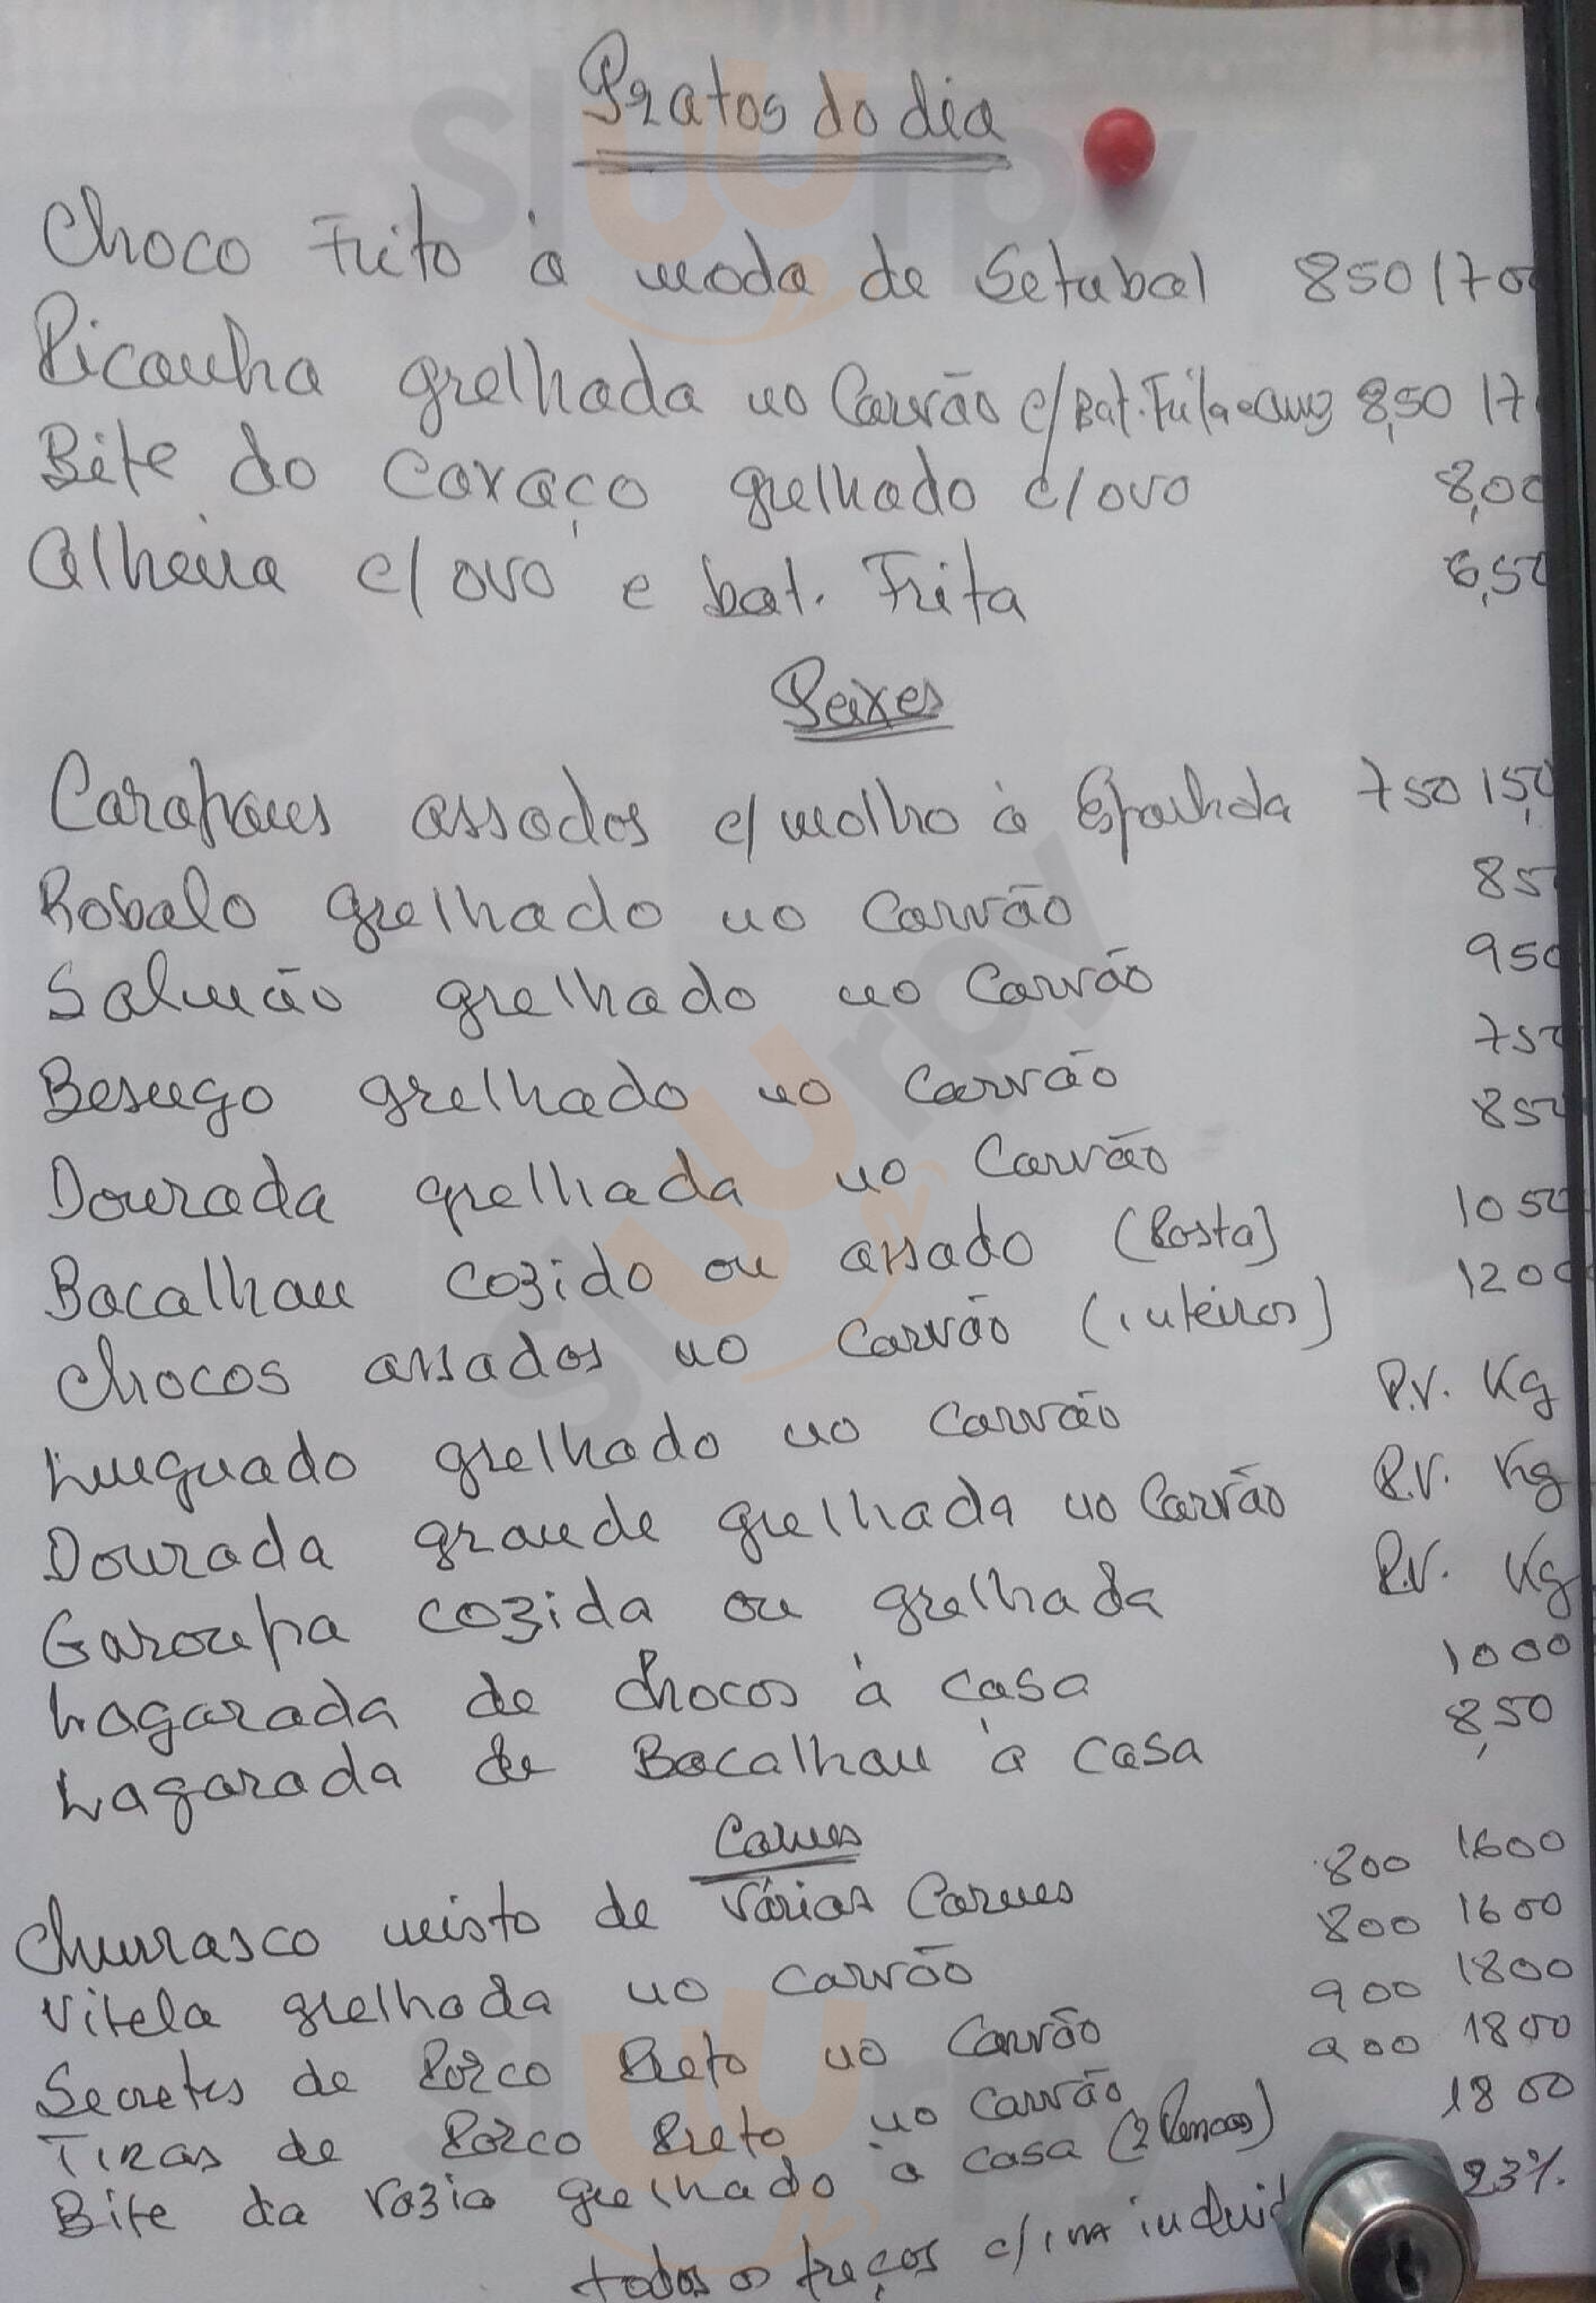 Pratos do dia
Choco Frito à moda de Setubal 850 1700
Picanha grelhada no Carvão c/Bat. Frita e arroz 8,50 17
Bife do Coraço grelhado c/ovo 8,00
Alheira c/ ovo e bat. Frita 6,50
Peixes
Carapaus assados c/molho à Espanhola 750 15,0
Robalo grelhado no Carvão 85
Salmão grelhado no Carvão 950
Besugo grelhado no Carvão 750
Dourada grelhada no Carvão 850
Bacalhau cozido ou assado (Posta) 1050
Chocos assados no Carvão (inteiros) 1200
Linguado grelhado no Carvão P.V. Kg
Dourada grande grelhada no Carvão P.V. Kg
Garoupa cozida ou grelhada P.V. Kg
Lagarada de Chocos à casa 1000
Lagarada de Bacalhau à casa 8,50
Carnes
Churrasco misto de várias Carnes 800 1600
Vitela grelhada no carvão 800 1600
Secretos de Porco Preto no Carvão 900 1800
Tiras de Porco Preto no Carvão 900 1800
Bife da vazia grelhado à casa (2 Pessoas) 1800
todos os preços c/ iva incluid 23%
sluurpy
sluurpy
sluurpy